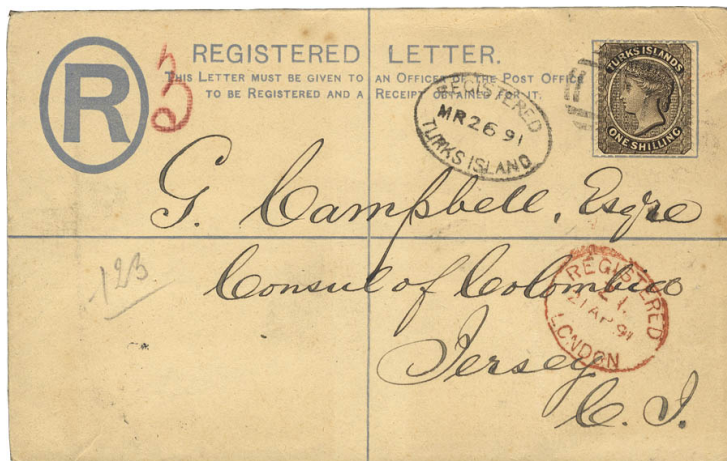 R
3
REGISTERED LETTER.
THIS LETTER MUST BE GIVEN TO AN OFFICER OF THE POST OFFICE
TO BE REGISTERED AND A RECEIPT OBTAINED FOR IT.
REGISTERED
MR 26 91
TURKS ISLAND
TURKS ISLANDS
ONE SHILLING
G. Campbell, Esqre
123
Consul of Colombia
REGISTERED
21 AP 91
LONDON
Jersey
C. I.